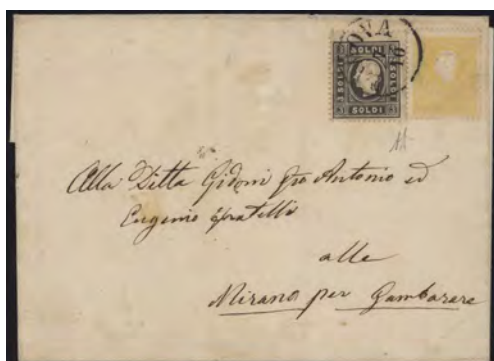 OVA
10
SOLDI
3 SOLDI 3
SOLDI
Alla Ditta Gidoni qm Antonio ed
Eugenio fratelli
alle
Mirano per Gambarare